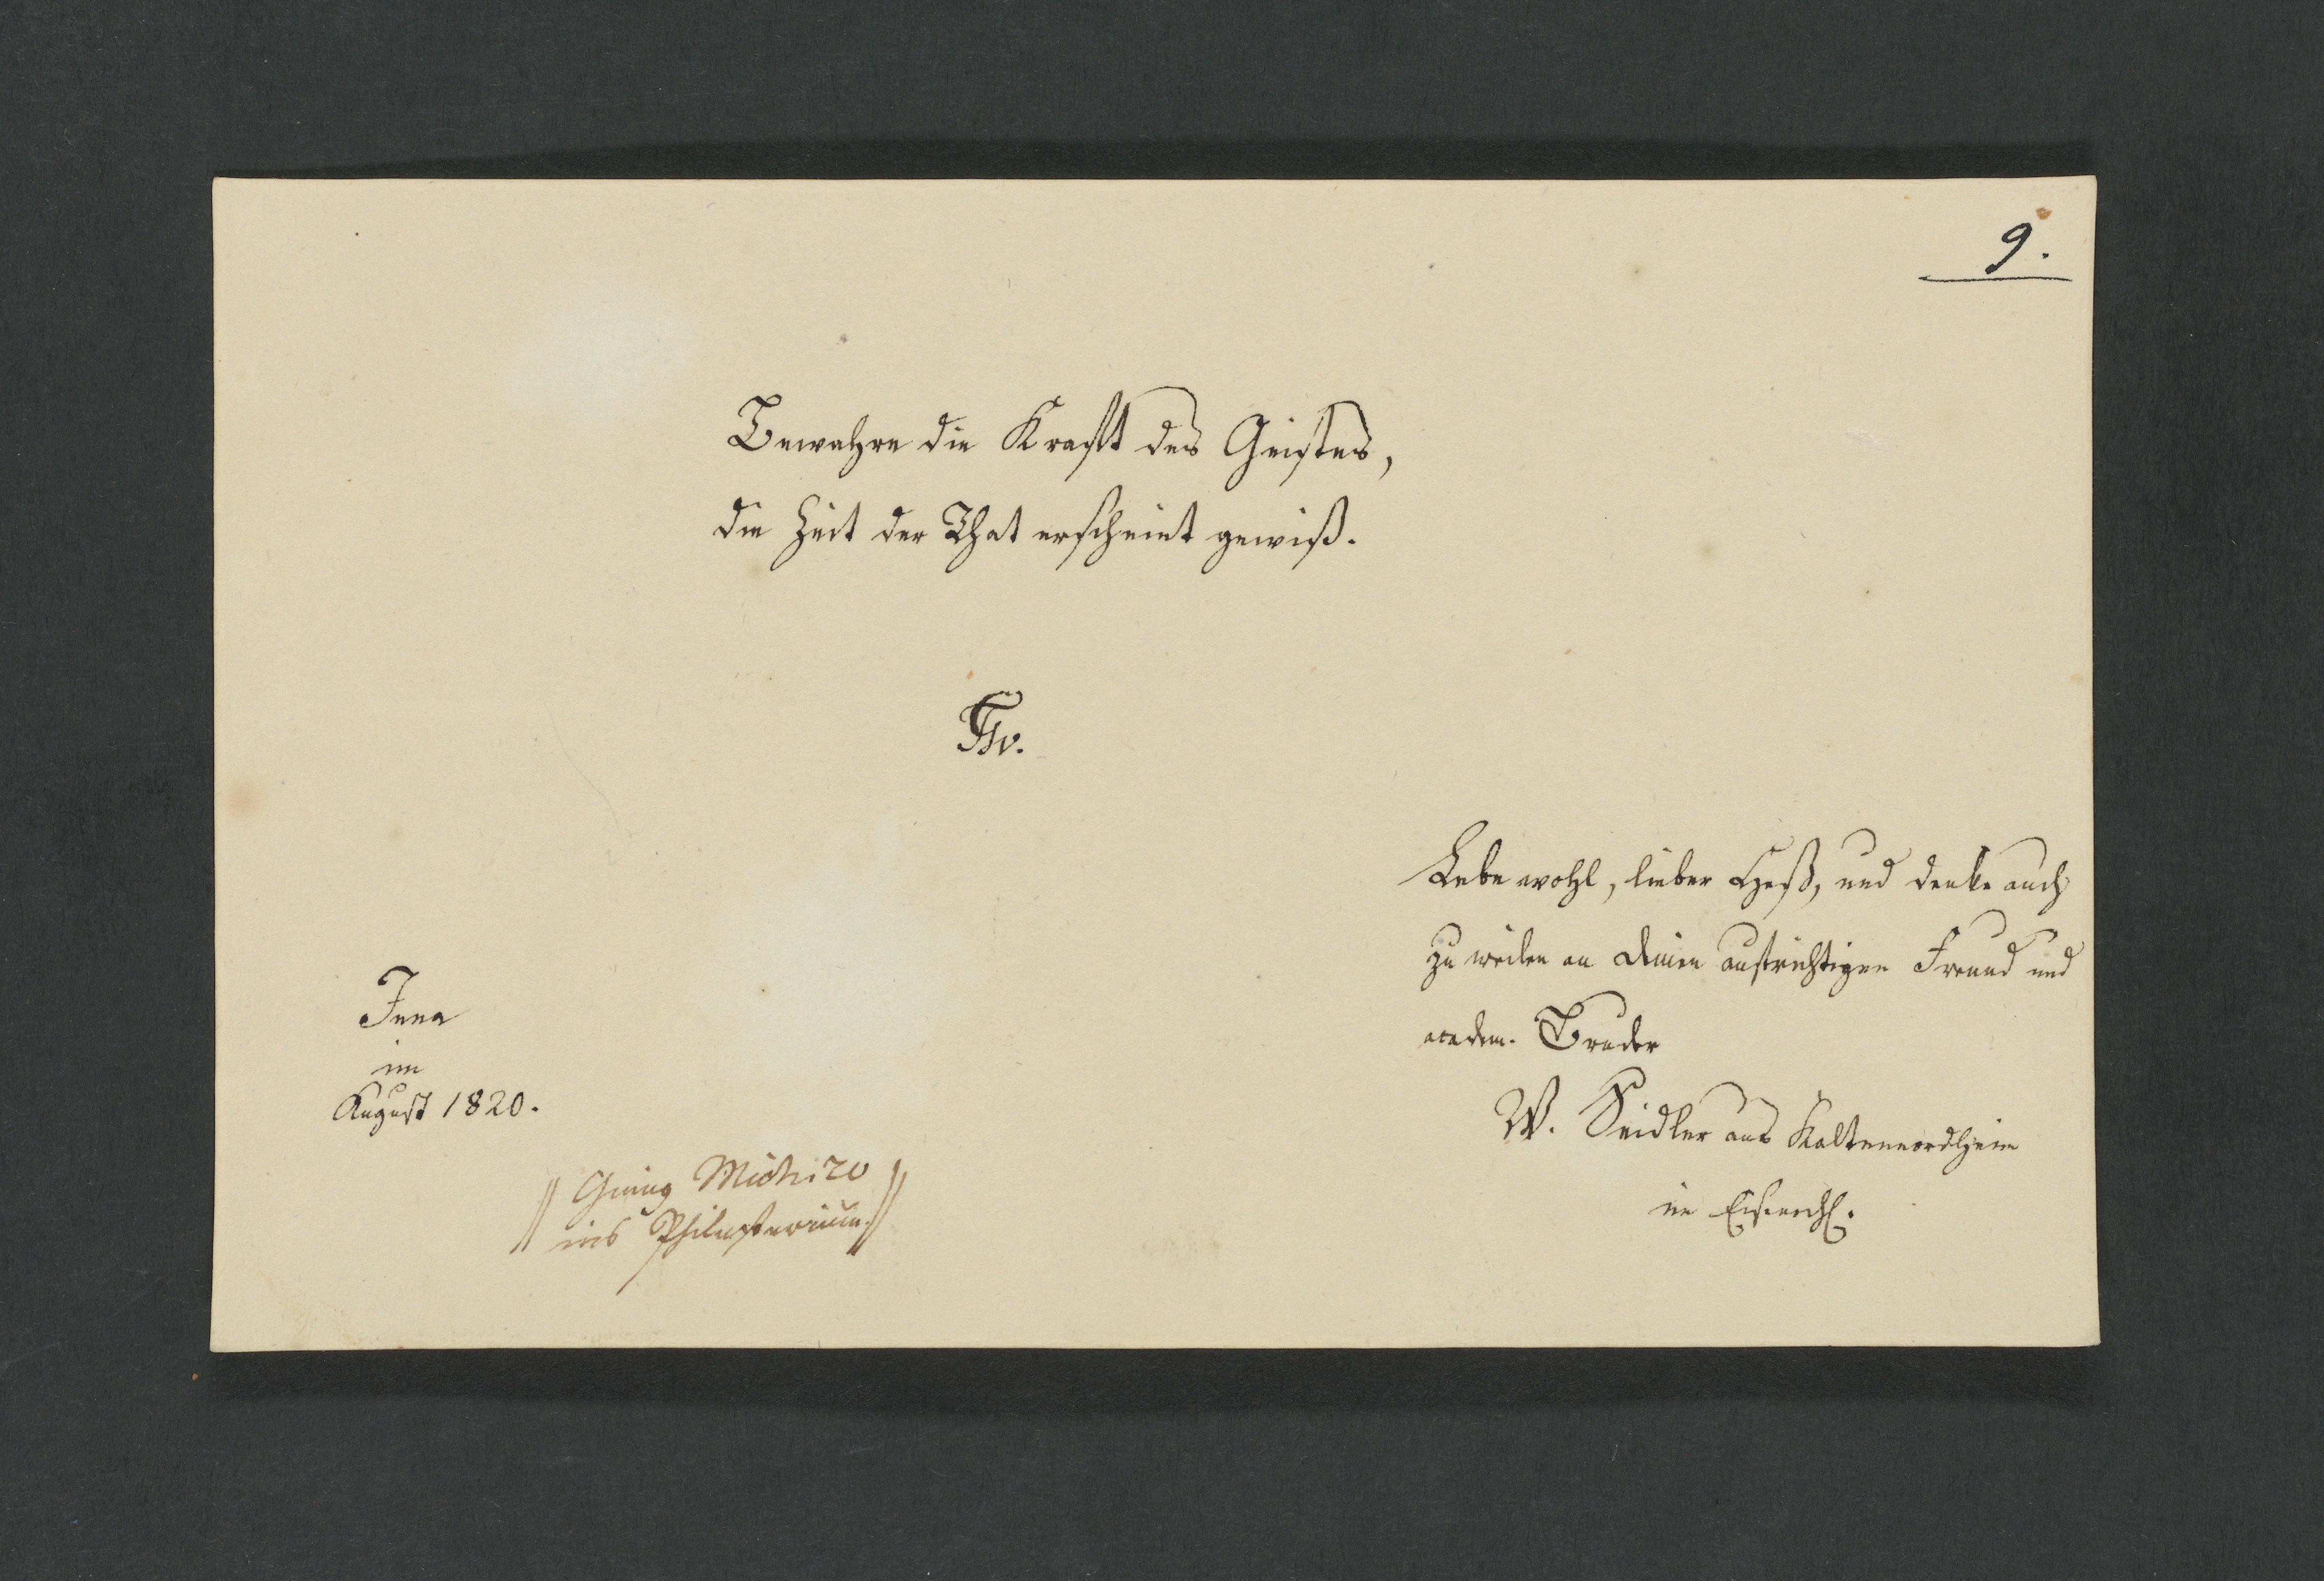 9.
Bewahre die Kraft des Geistes,
die Zeit der That erscheint gewiß.
Lebe wohl, lieber Heß, und denke auch
zu weilen an Deinen aufrichtigen Freund und
academ. Bruder
W. Seidler aus Kaltennordheim
im Eisenach.
Jena
im
August 1820.
// Gieng Mich. 20
ins Philisterium. //